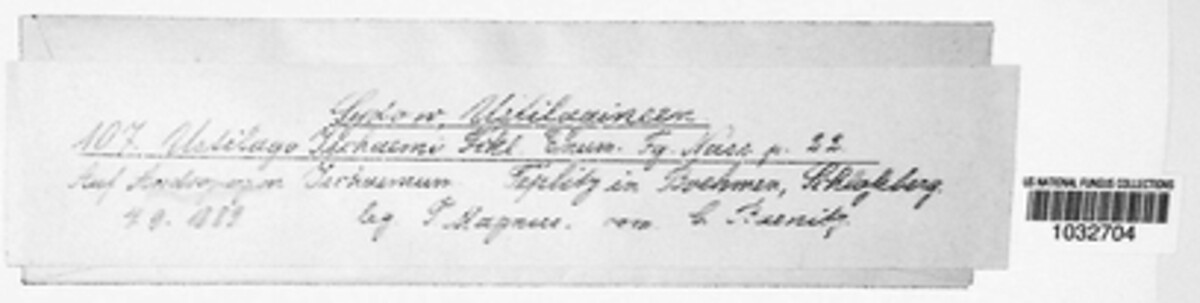 Sydow, Ustilagineen.
107. Ustilago Ischaemi Fckl. Enum. Fg. Nass. p. 22.
Auf Andropogon Ischaemum Teplitz in Boehmen, Schlossberg.
4. 9. 1889 leg. P. Magnus. com. C. Baenitz.
US NATIONAL FUNGUS COLLECTIONS
1032704